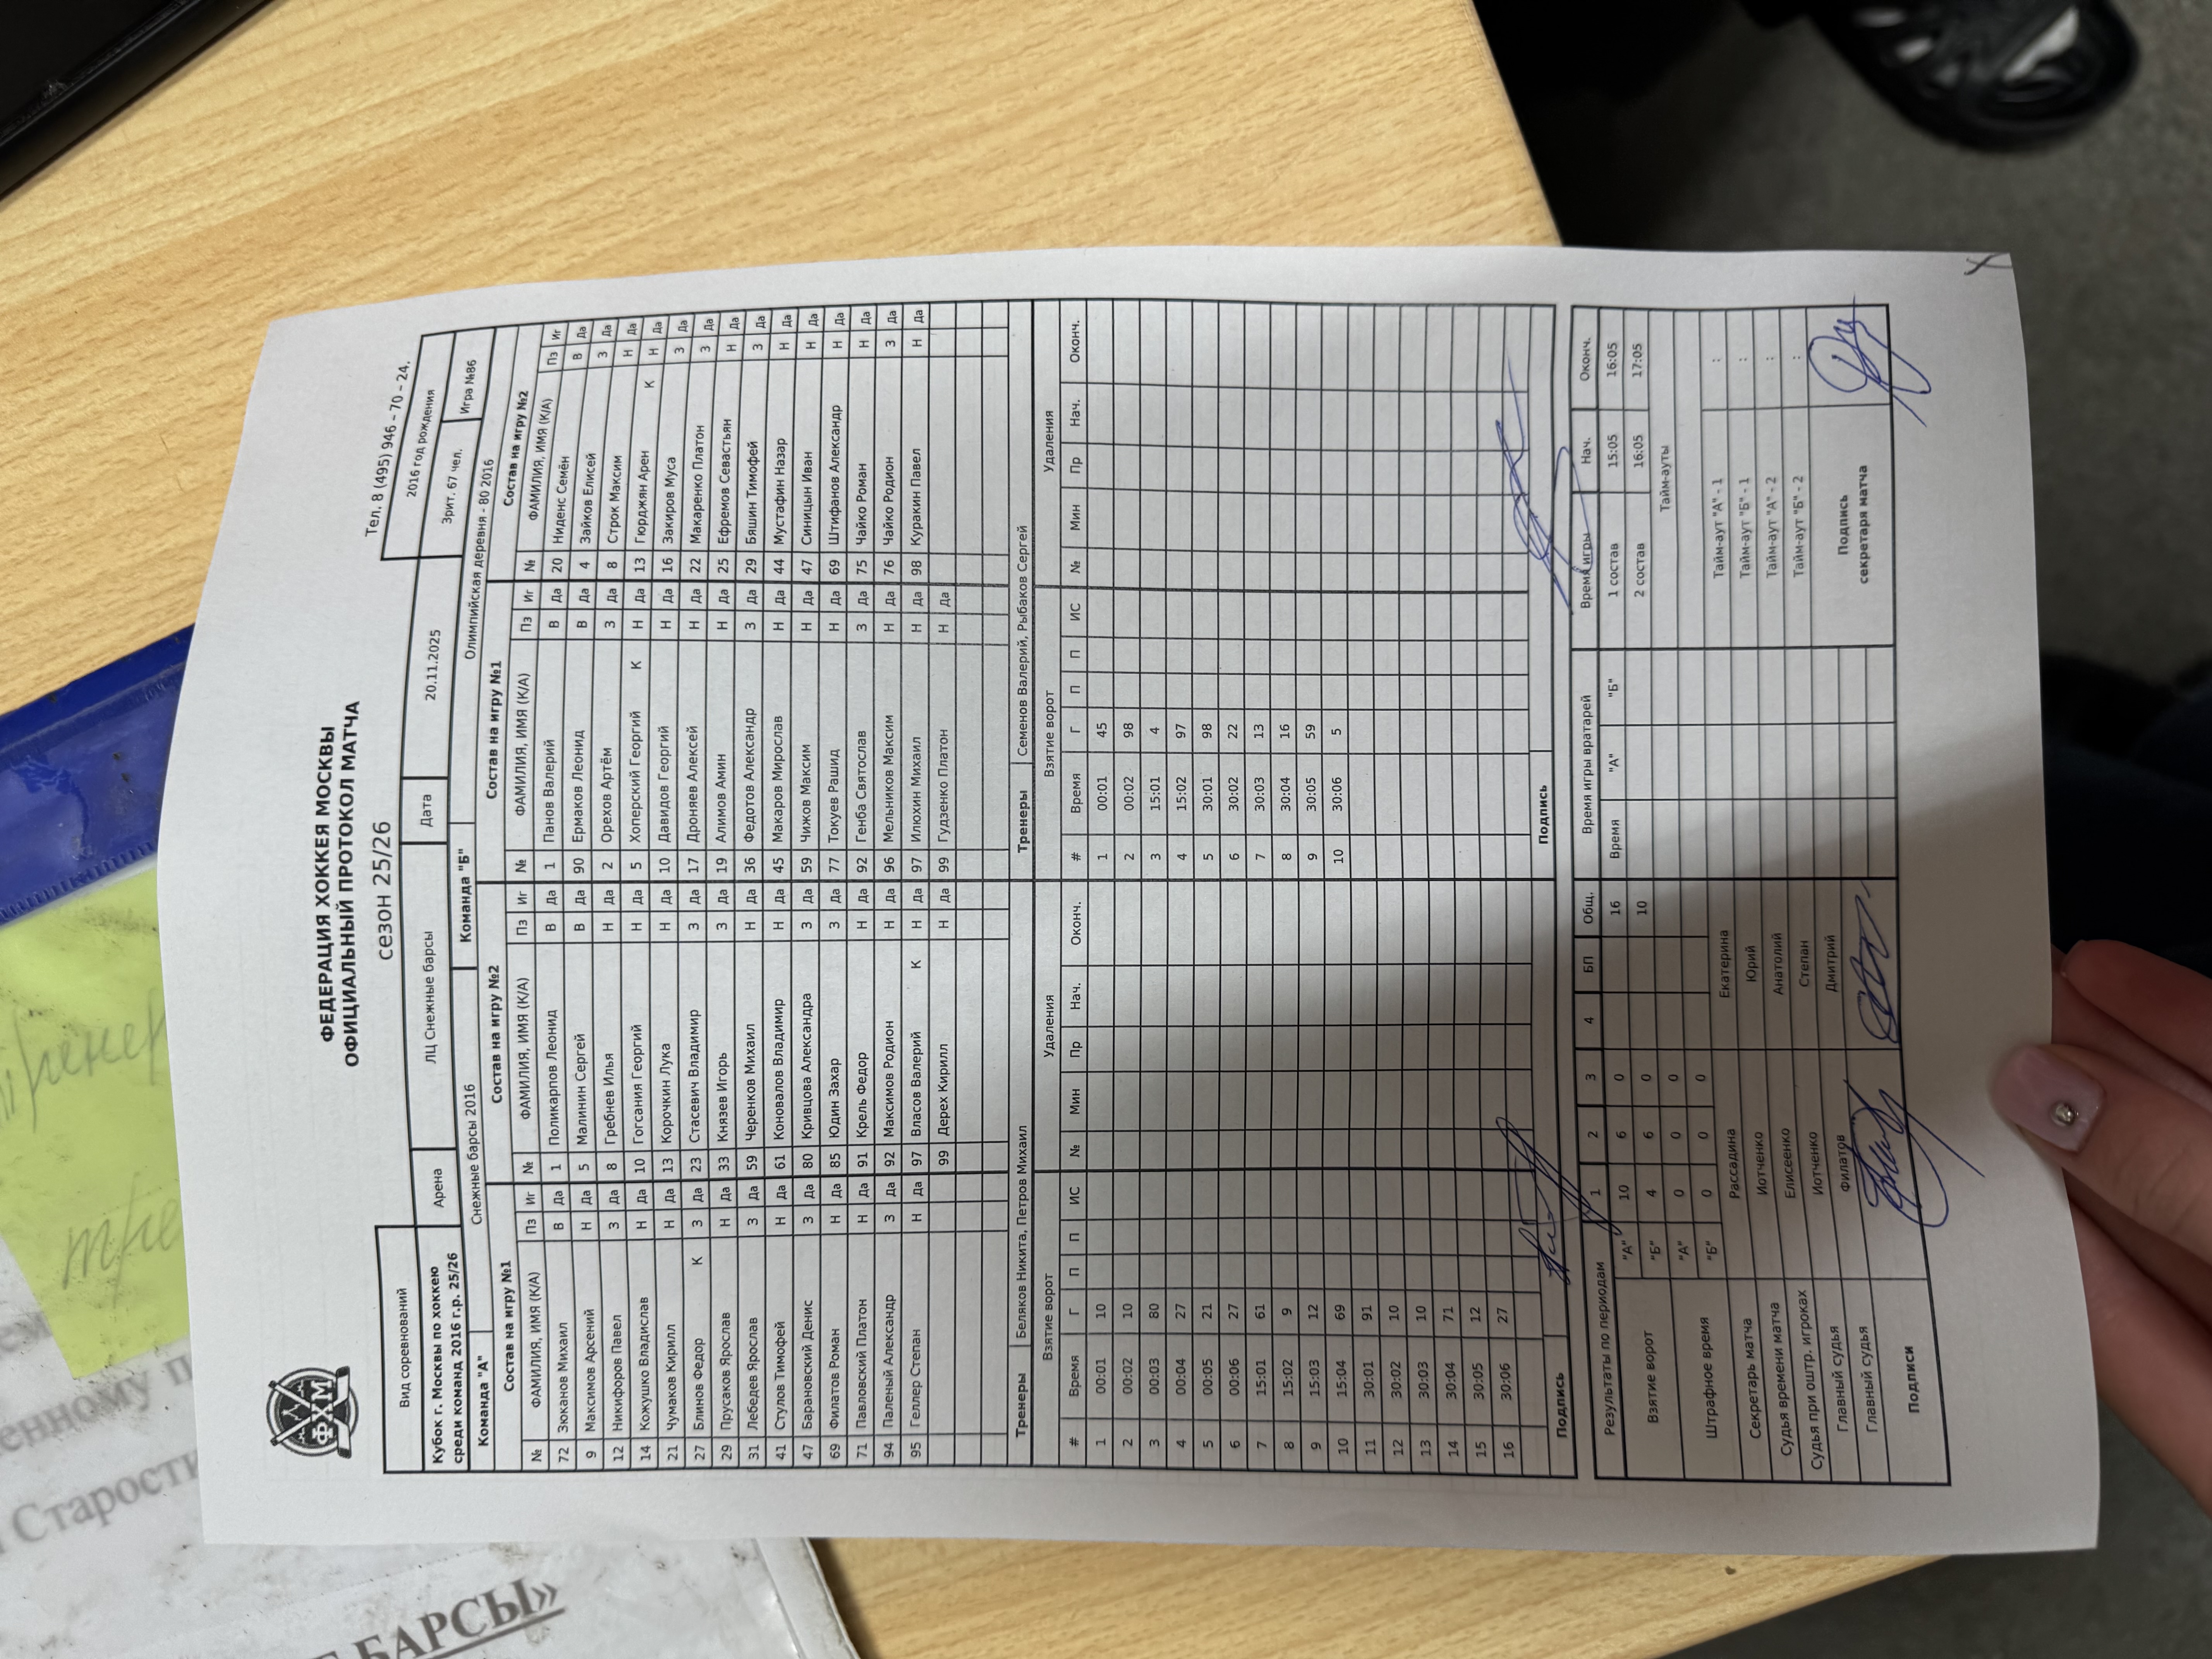 ФХМ
ФЕДЕРАЦИЯ ХОККЕЯ МОСКВЫ
ОФИЦИАЛЬНЫЙ ПРОТОКОЛ МАТЧА
сезон 25/26
Тел. 8 (495) 946 – 70 – 24,
Вид соревнований
2016 год рождения
Кубок г. Москвы по хоккею среди команд 2016 г.р. 25/26 Арена ЛЦ Снежные барсы Дата 20.11.2025 Зрит. 67 чел. Игра №86
Команда "А" Снежные барсы 2016 Команда "Б" Олимпийская деревня - 80 2016
Состав на игру №1 Состав на игру №2 Состав на игру №1 Состав на игру №2
№ ФАМИЛИЯ, ИМЯ (К/А) Пз Иг № ФАМИЛИЯ, ИМЯ (К/А) Пз Иг № ФАМИЛИЯ, ИМЯ (К/А) Пз Иг № ФАМИЛИЯ, ИМЯ (К/А) Пз Иг
72 Зюканов Михаил В Да 1 Поликарпов Леонид В Да 1 Панов Валерий В Да 20 Ниденс Семён В Да
9 Максимов Арсений Н Да 5 Малинин Сергей В Да 90 Ермаков Леонид В Да 4 Зайков Елисей З Да
12 Никифоров Павел З Да 8 Гребнев Илья Н Да 2 Орехов Артём З Да 8 Строк Максим Н Да
14 Кожушко Владислав Н Да 10 Гогсания Георгий Н Да 5 Хоперский Георгий К Н Да 13 Гюрджян Арен К Н Да
21 Чумаков Кирилл Н Да 13 Корочкин Лука Н Да 10 Давидов Георгий Н Да 16 Закиров Муса З Да
27 Блинов Федор К З Да 23 Стасевич Владимир З Да 17 Дроняев Алексей Н Да 22 Макаренко Платон З Да
29 Прусаков Ярослав Н Да 33 Князев Игорь З Да 19 Алимов Амин Н Да 25 Ефремов Севастьян Н Да
31 Лебедев Ярослав З Да 59 Черенков Михаил Н Да 36 Федотов Александр З Да 29 Бяшин Тимофей З Да
41 Стулов Тимофей Н Да 61 Коновалов Владимир Н Да 45 Макаров Мирослав Н Да 44 Мустафин Назар Н Да
47 Барановский Денис З Да 80 Кривцова Александра З Да 59 Чижов Максим Н Да 47 Синицын Иван Н Да
69 Филатов Роман Н Да 85 Юдин Захар З Да 77 Токуев Рашид Н Да 69 Штифанов Александр Н Да
71 Павловский Платон Н Да 91 Крель Федор Н Да 92 Генба Святослав З Да 75 Чайко Роман Н Да
94 Паленый Александр З Да 92 Максимов Родион Н Да 96 Мельников Максим Н Да 76 Чайко Родион З Да
95 Геллер Степан Н Да 97 Власов Валерий К Н Да 97 Илюхин Михаил Н Да 98 Куракин Павел Н Да
99 Дерех Кирилл Н Да 99 Гудзенко Платон Н Да
Тренеры Беляков Никита, Петров Михаил Тренеры Семенов Валерий, Рыбаков Сергей
Взятие ворот Удаления Взятие ворот Удаления
# Время Г П П ИС № Мин Пр Нач. Оконч. # Время Г П П ИС № Мин Пр Нач. Оконч.
1 00:01 10 1 00:01 45
2 00:02 10 2 00:02 98
3 00:03 80 3 15:01 4
4 00:04 27 4 15:02 97
5 00:05 21 5 30:01 98
6 00:06 27 6 30:02 22
7 15:01 61 7 30:03 13
8 15:02 9 8 30:04 16
9 15:03 12 9 30:05 59
10 15:04 69 10 30:06 5
11 30:01 91
12 30:02 10
13 30:03 10
14 30:04 71
15 30:05 12
16 30:06 27
Подпись Подпись
Результаты по периодам 1 2 3 4 БП Общ. Время игры вратарей Время игры Нач. Оконч.
Взятие ворот "А" 10 6 0 16 Время "А" "Б" 1 состав 15:05 16:05
"Б" 4 6 0 10 2 состав 16:05 17:05
Штрафное время "А" 0 0 0 Тайм-ауты
"Б" 0 0 0
Секретарь матча Рассадина Екатерина Тайм-аут "А" - 1 :
Судья времени матча Иотченко Юрий Тайм-аут "Б" - 1 :
Судья при оштр. игроках Елисеенко Анатолий Тайм-аут "А" - 2 :
Главный судья Иотченко Степан Тайм-аут "Б" - 2 :
Главный судья Филатов Дмитрий
Подписи Подпись секретаря матча
Старости
БАРСЫ»